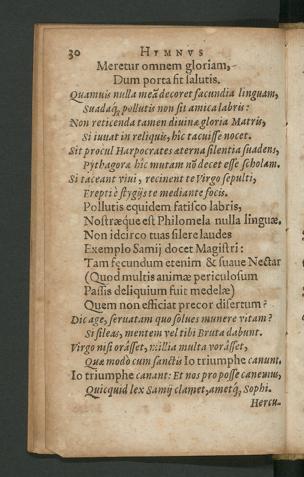 30 HYMNVS
Meretur omnem gloriam,
Dum porta sit salutis.
Quamuis nulla meũ decoret facundia linguam,
Suadaq́; pollutis non sit amica labris:
Non reticenda tamen diuinæ gloria Matris,
Si iuuat in reliquis, hic tacuisse nocet.
Sit procul Harpocrates æterna silentia suadens,
Pythagoræ hîc mutam nõ decet esse scholam.
Si taceant viui, recinent te Virgo sepulti,
Erepti è stygijs te mediante focis.
Pollutis equidem fatisco labris,
Nostræque est Philomela nulla linguæ.
Non idcirco tuas silere laudes
Exemplo Samij docet Magistri:
Tam fęcundum etenim & suaue Nectar
(Quod multis animæ periculosum
Passis deliquium fuit medelæ)
Quem non efficiat precor disertum?
Dic age, seruatam quo solues munere vitam?
Si sileas, mentem vel tibi Bruta dabunt.
Virgo nisi orâsset, millia multa vorâsset,
Quæ modò cum sanctis Io triumphe canunt.
Io triumphe canant: Et nos pro posse canemus,
Quicquid lex Samij clamet, ametq́; Sophi.
Hercu-